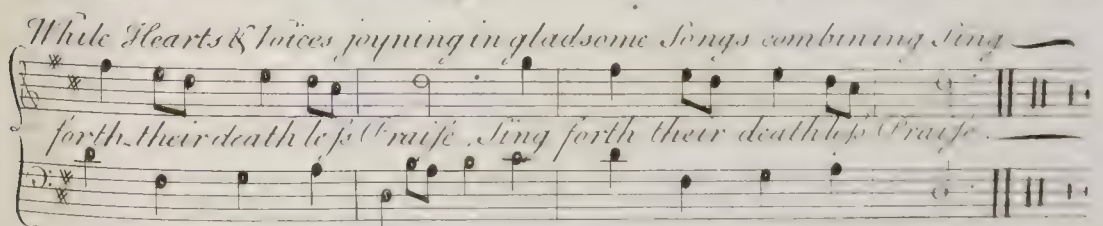 While Hearts & Voices joyning in gladsome Songs combining Sing
forth their deathleſs Praiſe. Sing forth their deathleſs Praiſe